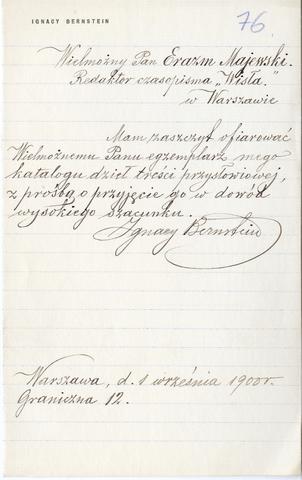 IGNACY BERNSTEIN
76.
Wielmożny Pan Erazm Majewski.
Redaktor czasopisma „Wisła."
w Warszawie
Mam zaszczyt ofiarować
Wielmożnemu Panu egzemplarz mego
katalogu dzieł treści przysłowiowej,
z prośbą o przyjęcie go w dowód
wysokiego szacunku.
Ignacy Bernstein
Warszawa, d. 1 września 1900 r.
Graniczna 12.